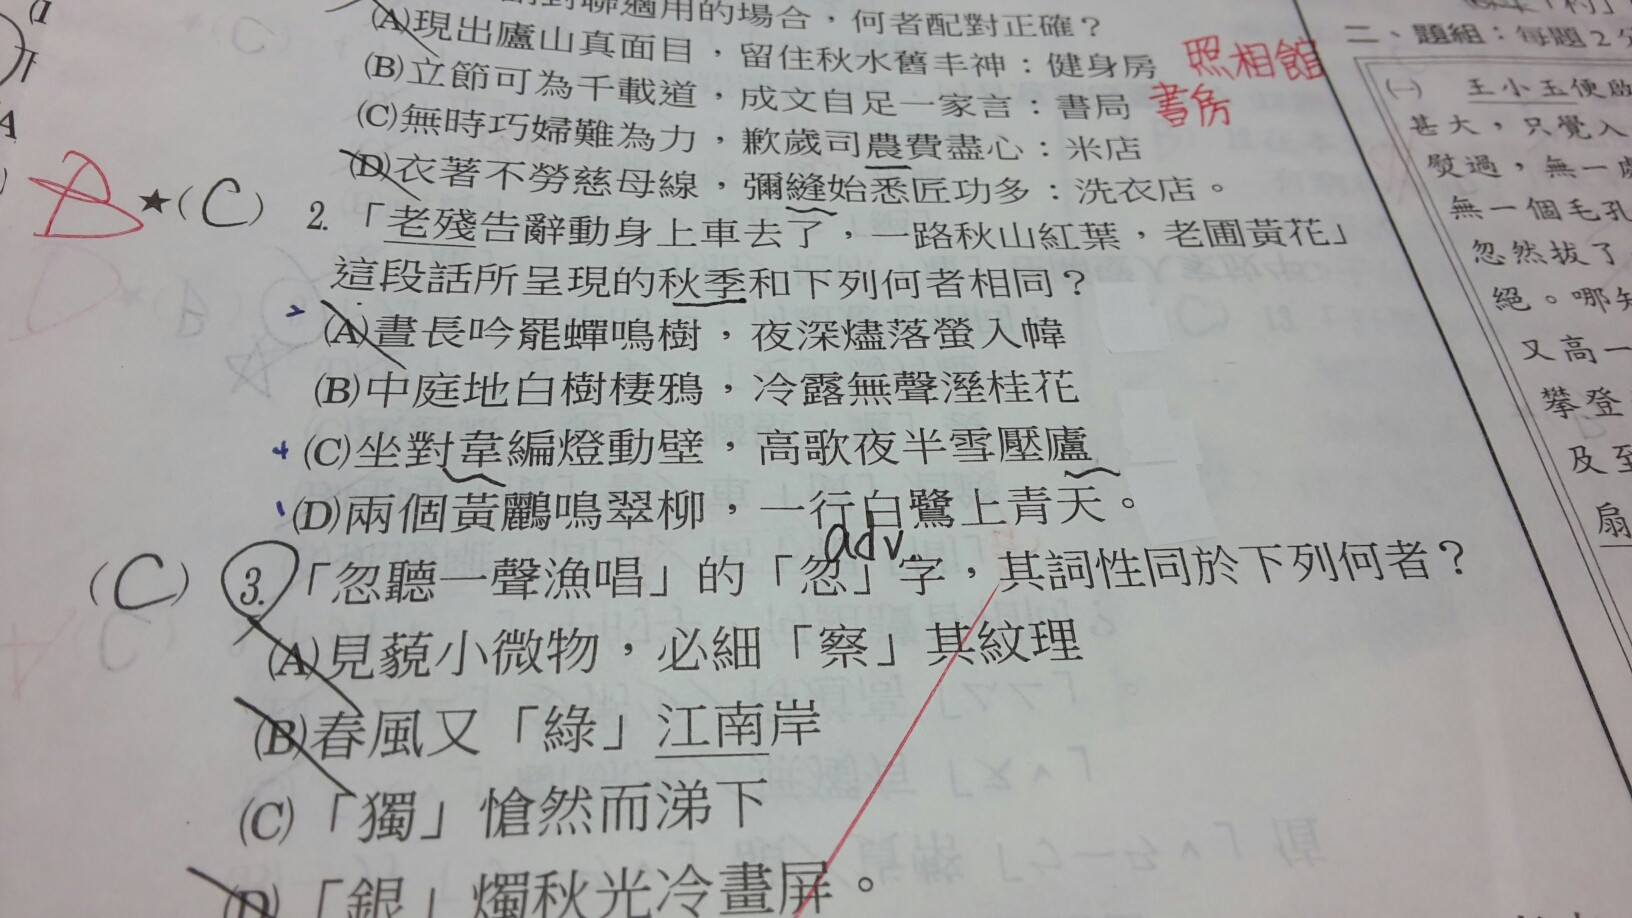 對聯適用的場合，何者配對正確？
(A)現出廬山真面目，留住秋水舊丰神：健身房 照相館
(B)立節可為千載道，成文自足一家言：書局 書房
(C)無時巧婦難為力，歉歲司農費盡心：米店
(D)衣著不勞慈母線，彌縫始悉匠功多：洗衣店。
B ★(C) 2.「老殘告辭動身上車去了，一路秋山紅葉，老圃黃花」
這段話所呈現的秋季和下列何者相同？
(A)晝長吟罷蟬鳴樹，夜深燼落螢入幃
(B)中庭地白樹棲鴉，冷露無聲溼桂花
(C)坐對韋編燈動壁，高歌夜半雪壓廬
(D)兩個黃鸝鳴翠柳，一行白鷺上青天。
adv.
(C) 3.「忽聽一聲漁唱」的「忽」字，其詞性同於下列何者？
(A)見藐小微物，必細「察」其紋理
(B)春風又「綠」江南岸
(C)「獨」愴然而涕下
(D)「銀」燭秋光冷畫屏。
二、題組：每題2分
(一) 王小玉便啟
甚大，只覺入
熨過，無一處
無一個毛孔
忽然拔了
絕。哪知
又高一
攀登
及至
扇